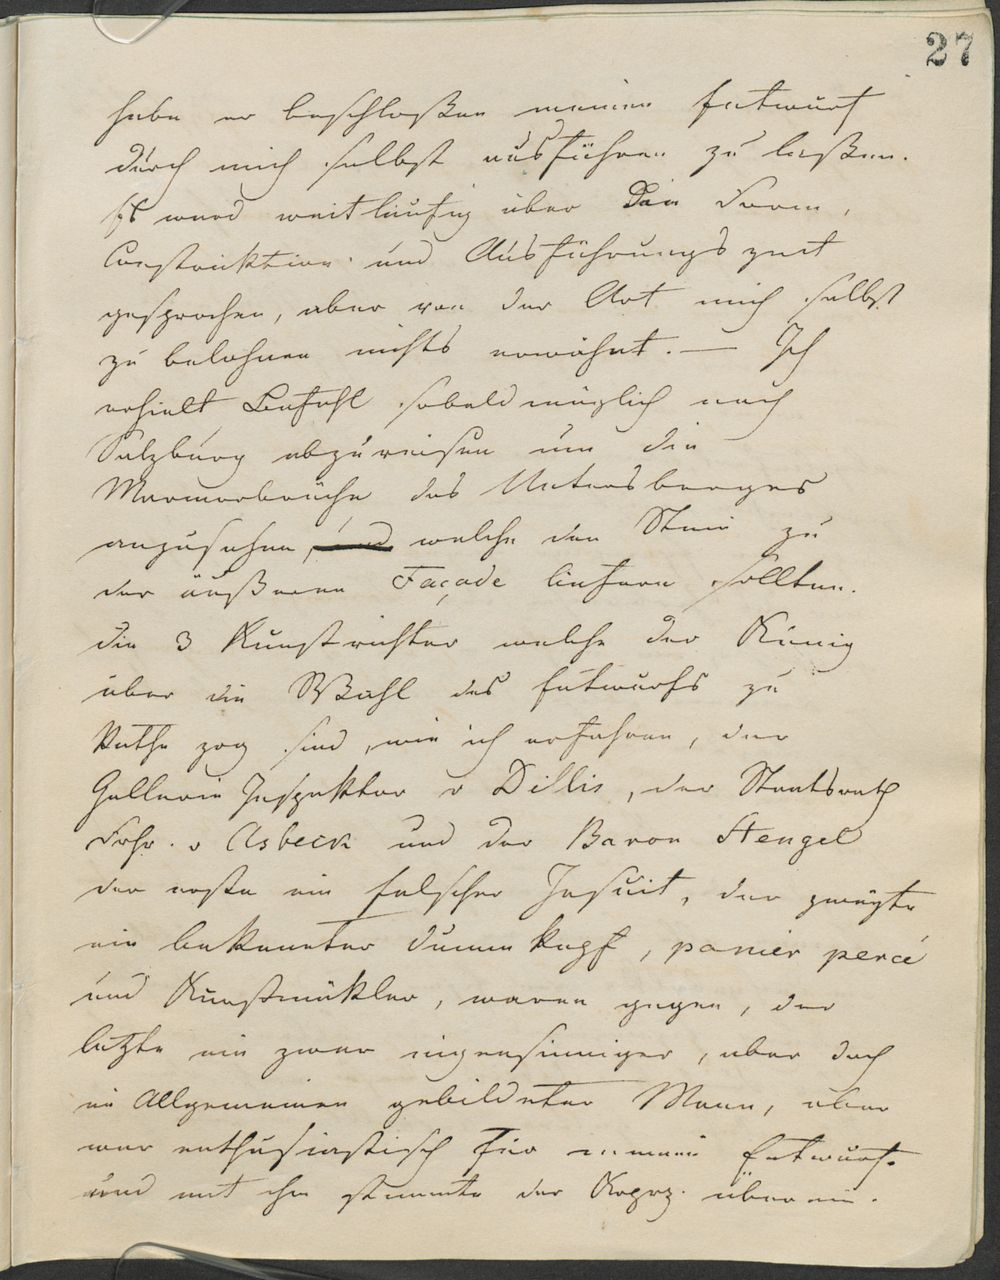 27
habe er beschloßen meinen Entwurf
durch mich selbst ausführen zu laßen.
Es ward weitläufig über die Form,
Construktion und Ausführungszeit
gesprochen, aber von der Art mich selbst
zu belohnen nichts erwähnt. — Ich
erhielt Befehl sobald möglich nach
Salzburg abzureisen um die
Marmorbrüche des Untersberges
anzusehen, welche den Stein zu
der äußeren Façade liefern sollten.
die 3 Kunstrichter welche der König
über die Wahl des Entwurfs zu
Rathe zog sind, wie ich erfahren, der
Gallerie Inspektor v Dillis, der Staatsrath
Frhr. v Asbeck und der Baron Stengel
der erste ein falscher Jesuit, der zweyte
ein bekannter Dummkopf, panier percé
und Kunstmäkler, waren gegen, der
letzte ein zwar eigensinniger, aber doch
im Allgemeinen gebildeter Mann, aber
war enthusiastisch für meinen Entwurf.
und mit ihm stimmte der Krprz. überein.